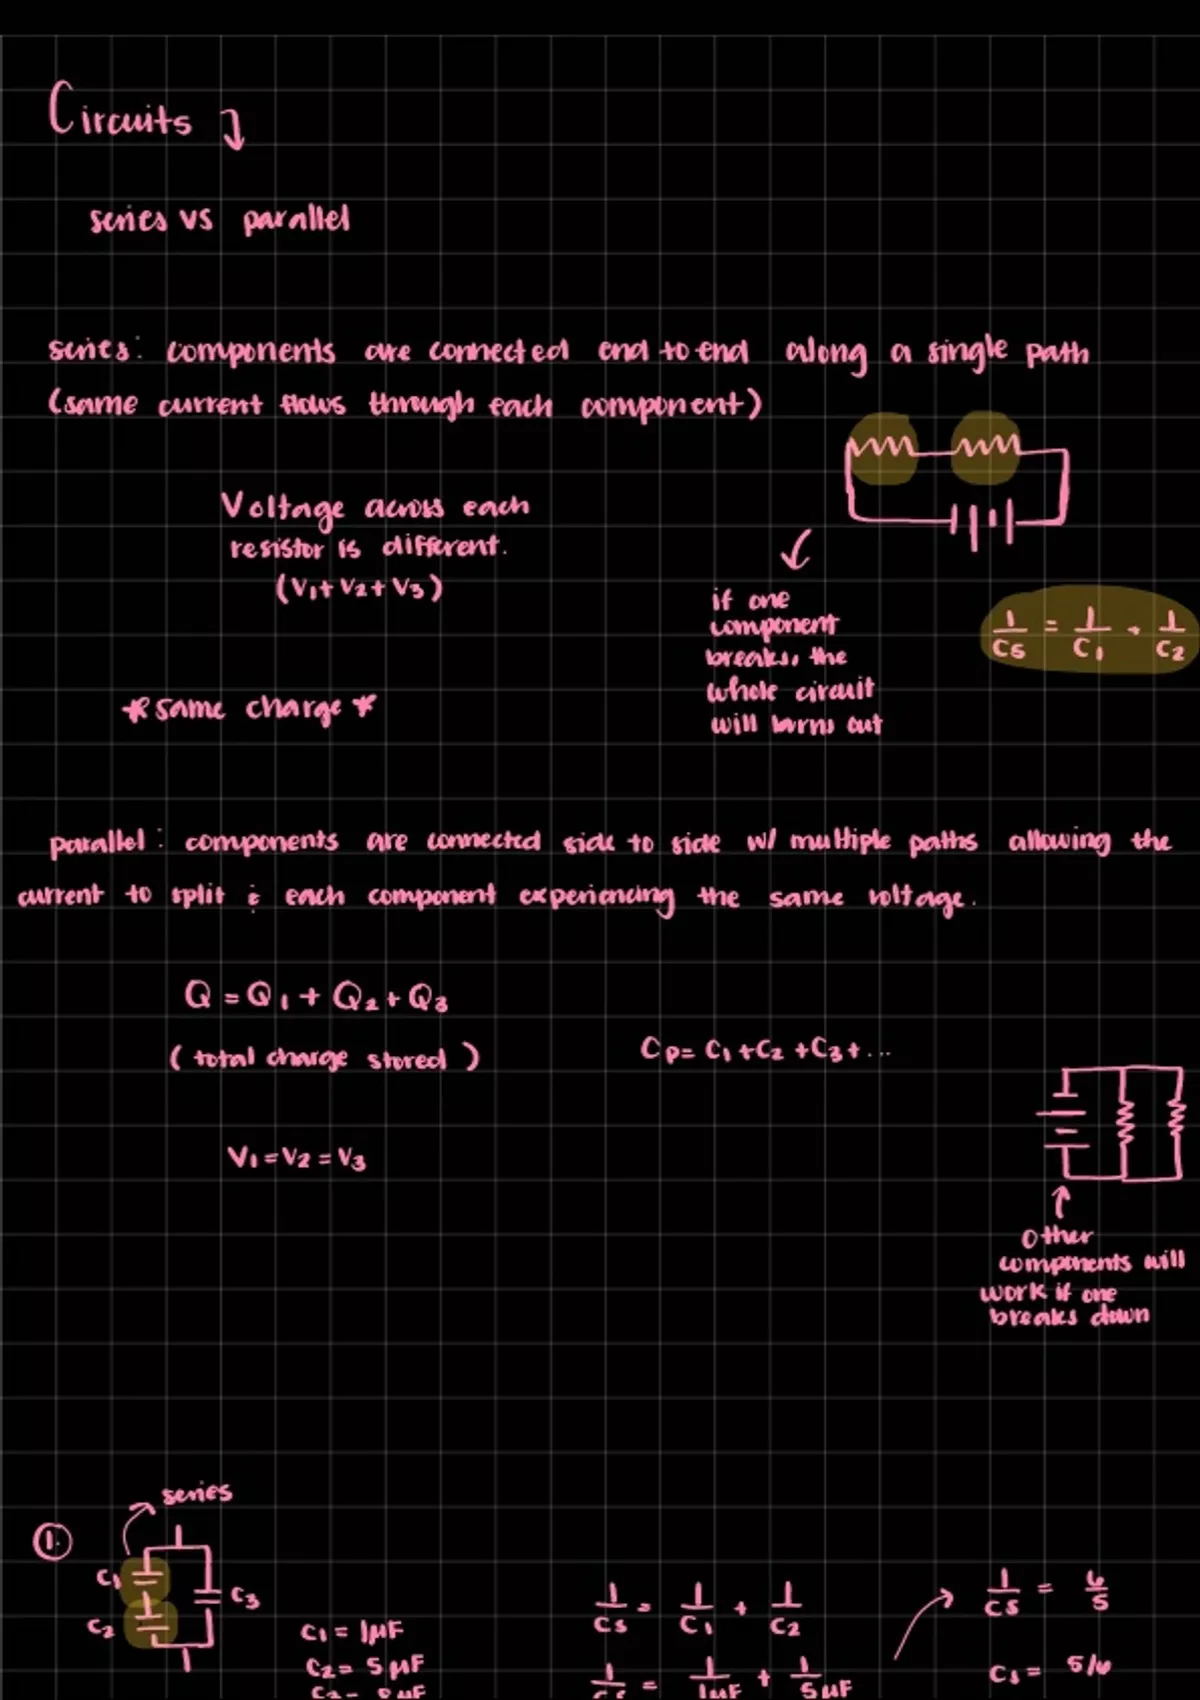 Circuits
series vs parallel
series: components are connected end to end along a single path
(same current flows through each component)
Voltage across each
resistor is different.
(V1 + V2 + V3)
if one
component
breaks, the
whole circuit
will burns out
1/Cs = 1/C1 + 1/C2
*same charge*
parallel: components are connected side to side w/ multiple paths allowing the
current to split & each component experiencing the same voltage.
Q = Q1 + Q2 + Q3
(total charge stored)
Cp = C1 + C2 + C3 + ...
V1 = V2 = V3
other
components will
work if one
breaks down
series
1.
C1
C2
C3
C1 = 1μF
C2 = 5μF
1/Cs = 1/C1 + 1/C2
1/Cs = 1/1μF + 1/5μF
1/Cs = 6/5
Cs = 5/6